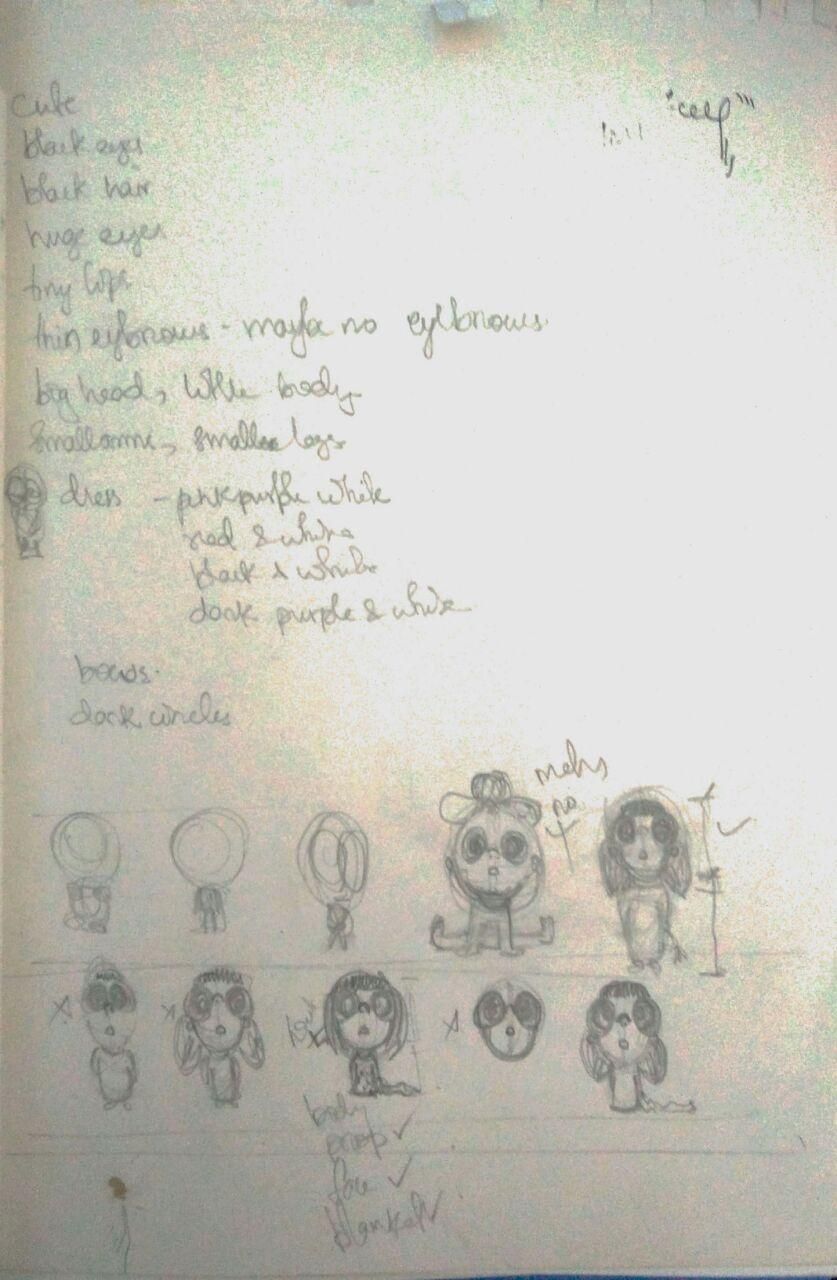 cute
black eyes
black hair
huge eyes
tiny lips
thin eybrows - maybe no eyebrows
big head, little body
small arms, smaller legs
dress - pink purple white
red & white
black & white
dark purple & white
bows.
dark circles
no
body
prop ✓
face ✓
blanket ✓